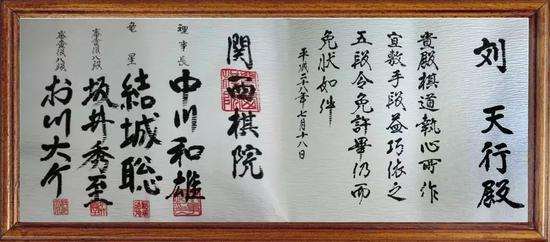 刘 天行殿
貴殿棋道執心所作
宜敷手段益巧依之
五段令免許畢仍而
免状如件
平成二十八年七月十八日
関西棋院
理事長
中川和雄
竜星
結城聡
審査役八段
坂井秀至
審査役八段